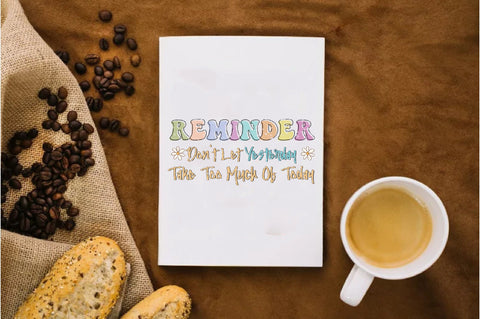 REMINDER
Don't Let Yesterday
Take Too Much Of Today